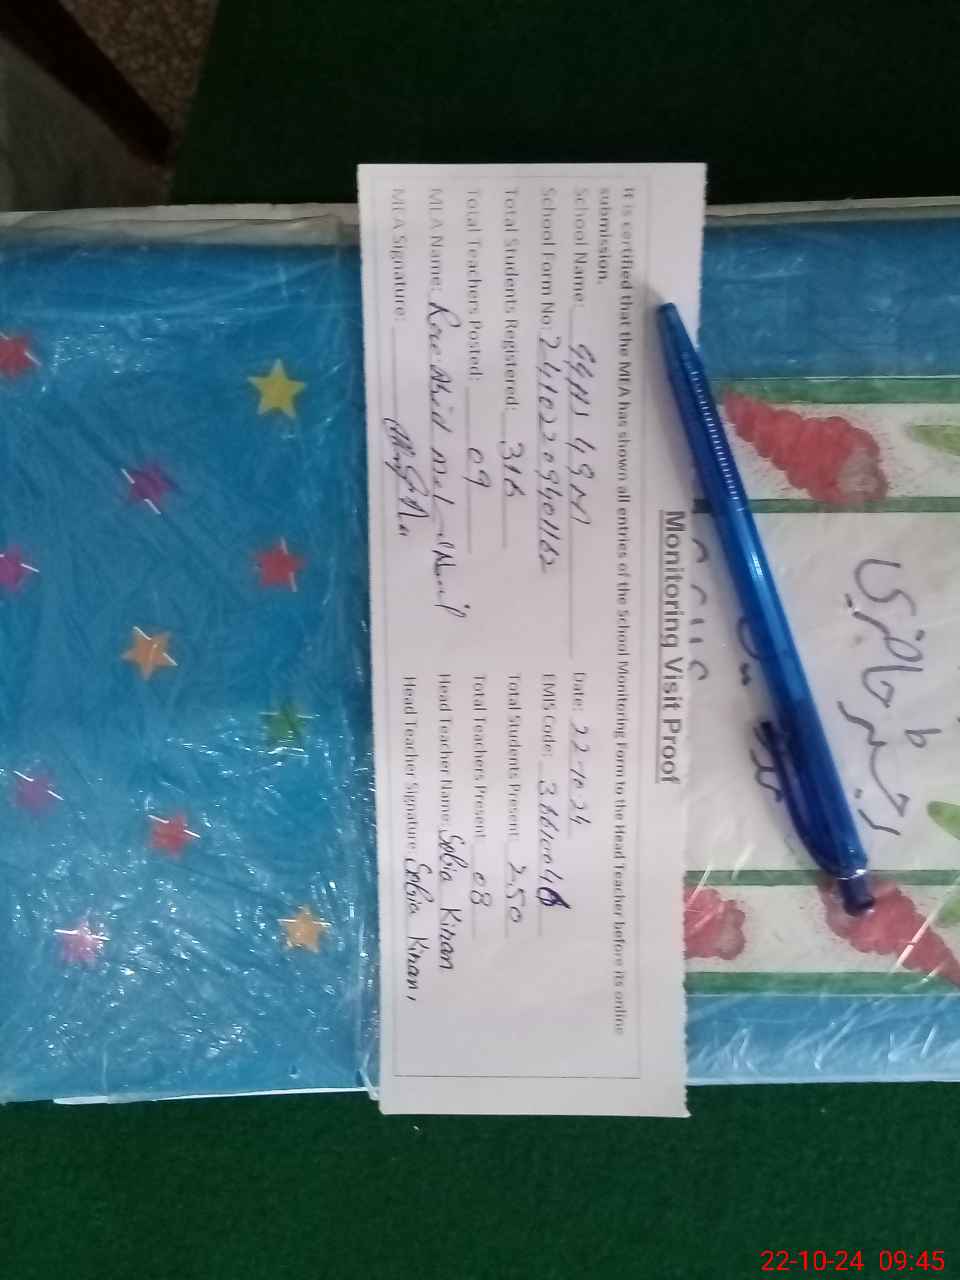 Monitoring Visit Proof
It is certified that the MEA has shown all entries of the School Monitoring Form to the Head Teacher before its online
submission.
School Name: GGHS 49 M Date: 22-10-24
School Form No: 24102209401162 EMIS Code:
Total Students Registered: 316 Total Students Present: 250
Total Teachers Posted: 09 Total Teachers Present: 08
MEA Name: Head Teacher Name: Sobia Kiran
MEA Signature: Head Teacher Signature: Sobia Kiran
رجسٹر حاضری
22-10-24 09:45